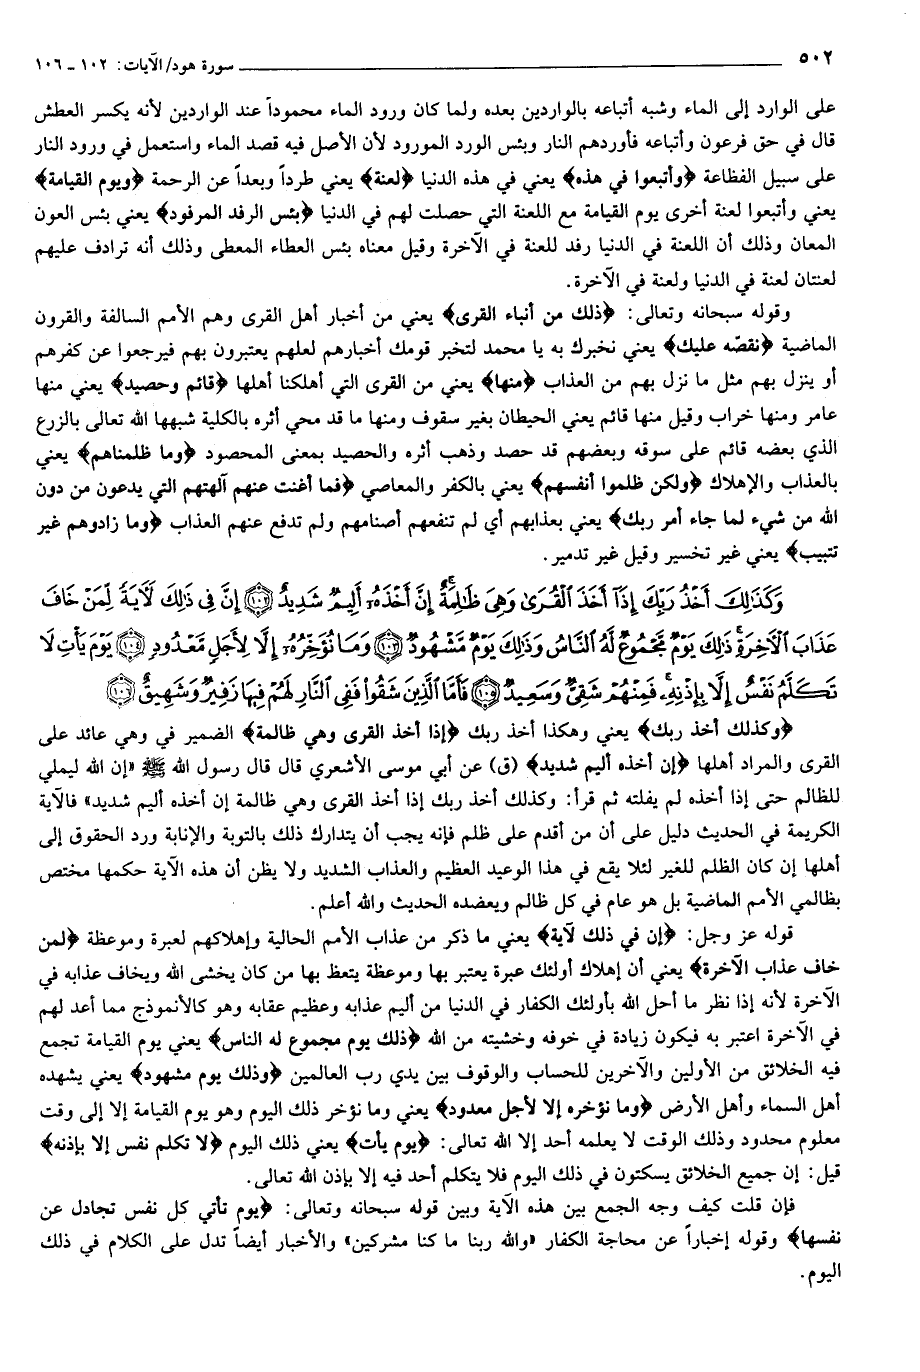 ٥٠٢ سورة هود/ الآيات: ١٠٢ ـ ١٠٦
على الوارد إلى الماء وشبه أتباعه بالواردين بعده ولما كان ورود الماء محموداً عند الواردين لأنه يكسر العطش
قال في حق فرعون وأتباعه فأوردهم النار وبئس الورد المورود لأن الأصل فيه قصد الماء واستعمل في ورود النار
على سبيل الفظاعة ﴿وأتبعوا في هذه﴾ يعني في هذه الدنيا ﴿لعنة﴾ يعني طرداً وبعداً عن الرحمة ﴿ويوم القيامة﴾
يعني وأتبعوا لعنة أخرى يوم القيامة مع اللعنة التي حصلت لهم في الدنيا ﴿بئس الرفد المرفود﴾ يعني بئس العون
المعان وذلك أن اللعنة في الدنيا رفد للعنة في الآخرة وقيل معناه بئس العطاء المعطى وذلك أنه ترادف عليهم
لعنتان لعنة في الدنيا ولعنة في الآخرة.
وقوله سبحانه وتعالى: ﴿ذلك من أنباء القرى﴾ يعني من أخبار أهل القرى وهم الأمم السالفة والقرون
الماضية ﴿نقصّه عليك﴾ يعني نخبرك به يا محمد لتخبر قومك أخبارهم لعلهم يعتبرون بهم فيرجعوا عن كفرهم
أو ينزل بهم مثل ما نزل بهم من العذاب ﴿منها﴾ يعني من القرى التي أهلكنا أهلها ﴿قائم وحصيد﴾ يعني منها
عامر ومنها خراب وقيل منها قائم يعني الحيطان بغير سقوف ومنها ما قد محي أثره بالكلية شبهها الله تعالى بالزرع
الذي بعضه قائم على سوقه وبعضهم قد حصد وذهب أثره والحصيد بمعنى المحصود ﴿وما ظلمناهم﴾ يعني
بالعذاب والإهلاك ﴿ولكن ظلموا أنفسهم﴾ يعني بالكفر والمعاصي ﴿فما أغنت عنهم آلهتهم التي يدعون من دون
الله من شيء لما جاء أمر ربك﴾ يعني بعذابهم أي لم تنفعهم أصنامهم ولم تدفع عنهم العذاب ﴿وما زادوهم غير
تتبيب﴾ يعني غير تخسير وقيل غير تدمير.
وَكَذَٰلِكَ أَخْذُ رَبِّكَ إِذَآ أَخَذَ ٱلْقُرَىٰ وَهِىَ ظَٰلِمَةٌ ۚ إِنَّ أَخْذَهُۥٓ أَلِيمٌ شَدِيدٌ ﴿١٠٢﴾ إِنَّ فِى ذَٰلِكَ لَأٓيَةً لِّمَنْ خَافَ
عَذَابَ ٱلْأٓخِرَةِ ۚ ذَٰلِكَ يَوْمٌ مَّجْمُوعٌ لَّهُ ٱلنَّاسُ وَذَٰلِكَ يَوْمٌ مَّشْهُودٌ ﴿١٠٣﴾ وَمَا نُؤَخِّرُهُۥٓ إِلَّا لِأَجَلٍ مَّعْدُودٍ ﴿١٠٤﴾ يَوْمَ يَأْتِ لَا
تَكَلَّمُ نَفْسٌ إِلَّا بِإِذْنِهِۦ ۚ فَمِنْهُمْ شَقِىٌّ وَسَعِيدٌ ﴿١٠٥﴾ فَأَمَّا ٱلَّذِينَ شَقُوا۟ فَفِى ٱلنَّارِ لَهُمْ فِيهَا زَفِيرٌ وَشَهِيقٌ ﴿١٠٦﴾
﴿وكذلك أخذ ربك﴾ يعني وهكذا أخذ ربك ﴿إذا أخذ القرى وهي ظالمة﴾ الضمير في وهي عائد على
القرى والمراد أهلها ﴿إن أخذه أليم شديد﴾ (ق) عن أبي موسى الأشعري قال قال رسول الله ﷺ «إن الله ليملي
للظالم حتى إذا أخذه لم يفلته ثم قرأ: وكذلك أخذ ربك إذا أخذ القرى وهي ظالمة إن أخذه أليم شديد» فالآية
الكريمة في الحديث دليل على أن من أقدم على ظلم فإنه يجب أن يتدارك ذلك بالتوبة والإنابة ورد الحقوق إلى
أهلها إن كان الظلم للغير لئلا يقع في هذا الوعيد العظيم والعذاب الشديد ولا يظن أن هذه الآية حكمها مختص
بظالمي الأمم الماضية بل هو عام في كل ظالم ويعضده الحديث والله أعلم.
قوله عز وجل: ﴿إن في ذلك لآية﴾ يعني ما ذكر من عذاب الأمم الخالية وإهلاكهم لعبرة وموعظة ﴿لمن
خاف عذاب الآخرة﴾ يعني أن إهلاك أولئك عبرة يعتبر بها وموعظة يتعظ بها من كان يخشى الله ويخاف عذابه في
الآخرة لأنه إذا نظر ما أحل الله بأولئك الكفار في الدنيا من أليم عذابه وعظيم عقابه وهو كالأنموذج مما أعد لهم
في الآخرة اعتبر به فيكون زيادة في خوفه وخشيته من الله ﴿ذلك يوم مجموع له الناس﴾ يعني يوم القيامة تجمع
فيه الخلائق من الأولين والآخرين للحساب والوقوف بين يدي رب العالمين ﴿وذلك يوم مشهود﴾ يعني يشهده
أهل السماء وأهل الأرض ﴿وما نؤخره إلا لأجل معدود﴾ يعني وما نؤخر ذلك اليوم وهو يوم القيامة إلا إلى وقت
معلوم محدود وذلك الوقت لا يعلمه أحد إلا الله تعالى: ﴿يوم يأت﴾ يعني ذلك اليوم ﴿لا تكلم نفس إلا بإذنه﴾
قيل: إن جميع الخلائق يسكتون في ذلك اليوم فلا يتكلم أحد فيه إلا بإذن الله تعالى.
فإن قلت كيف وجه الجمع بين هذه الآية وبين قوله سبحانه وتعالى: ﴿يوم تأتي كل نفس تجادل عن
نفسها﴾ وقوله إخباراً عن محاجة الكفار «والله ربنا ما كنا مشركين» والأخبار أيضاً تدل على الكلام في ذلك
اليوم.